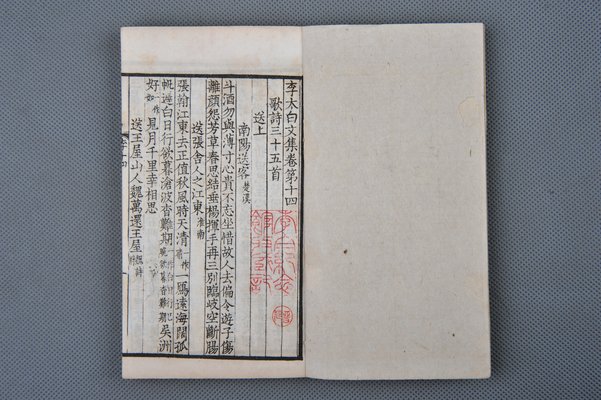 李太白文集卷第十四
歌詩三十五首
送上
南陽送客
斗酒勿與薄寸心貴不忘坐惜故人去偏令遊子傷
離顏怨芳草春思結垂楊揮手再三別臨岐空斷腸
送張舍人之江東
張翰江東去正值秋風時天清一作一鴈遠海闊孤
帆遲白日行欲暮滄波杳難期一作白日行欲暮杳難期吳洲
好一作如見月千里幸相思
送王屋山人魏萬還王屋